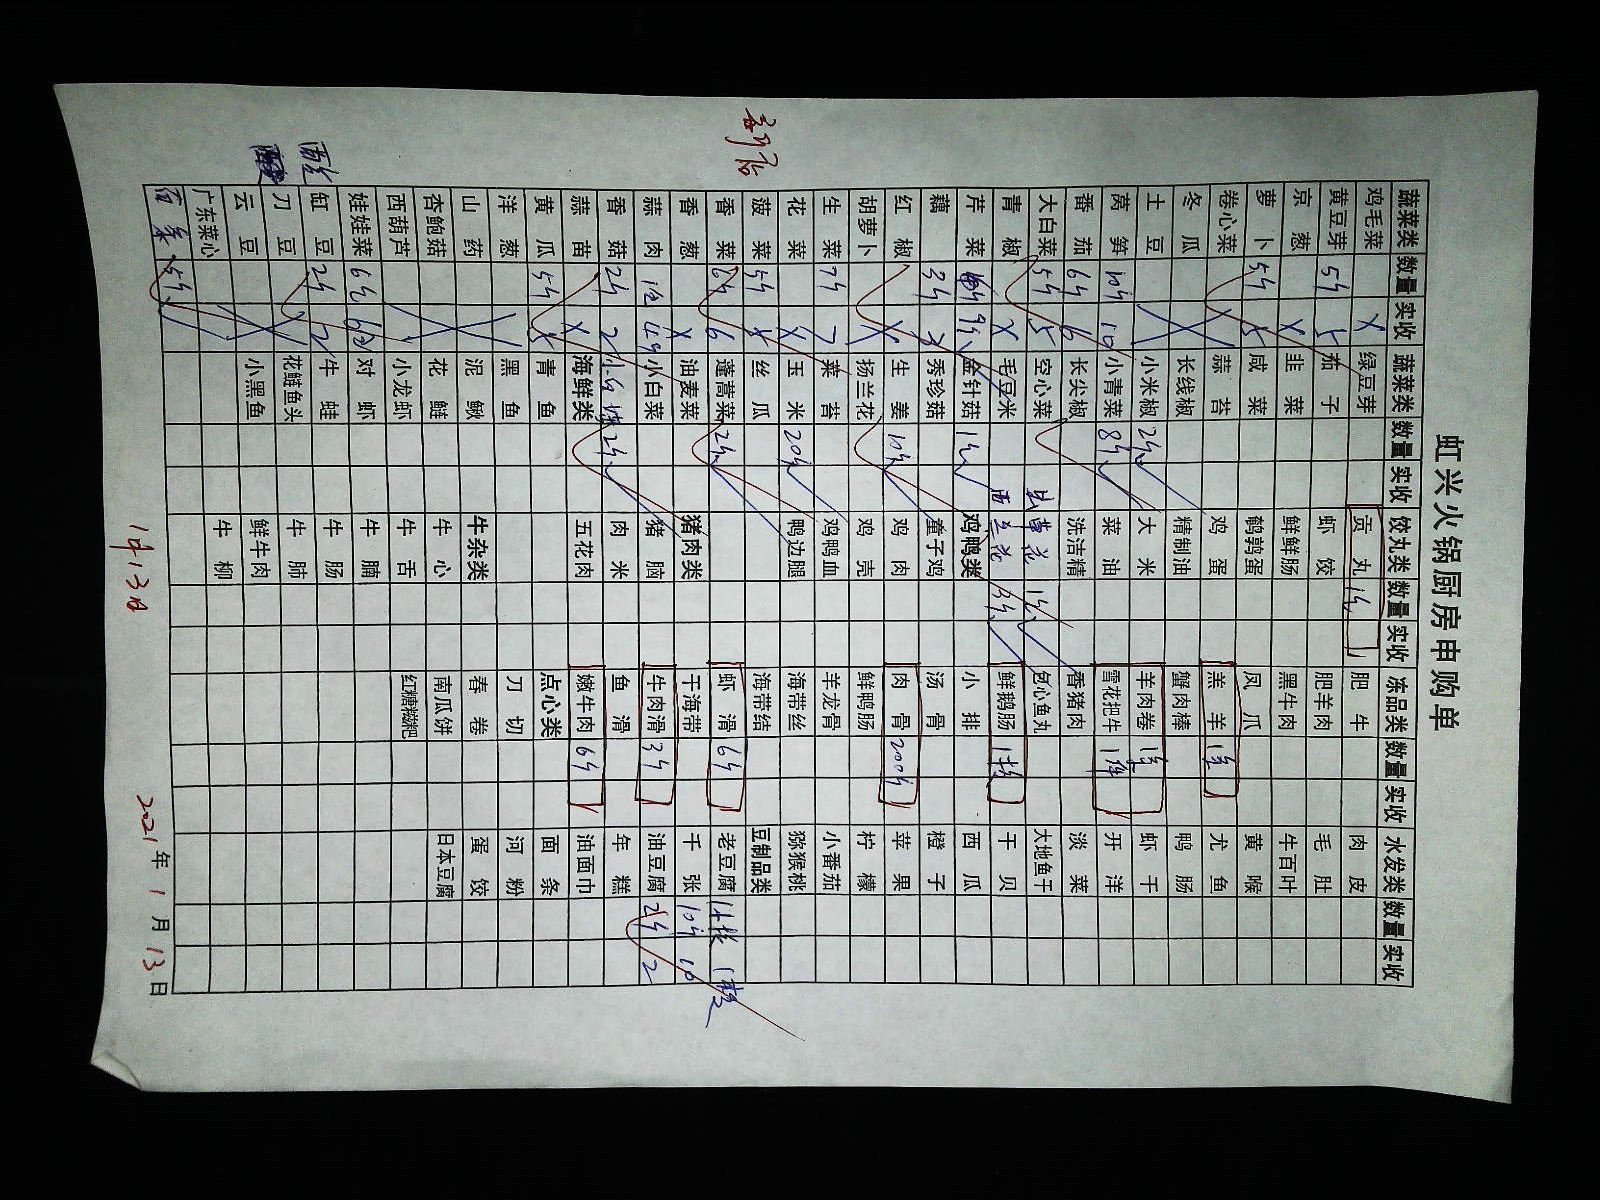 虹兴火锅厨房申购单
蔬菜类 数量 实收 蔬菜类 数量 实收 饺丸类 数量 实收 冻品类 数量 实收 水发类 数量 实收
鸡毛菜 X 绿豆芽 贡丸 1斤 肥牛 肉皮
黄豆芽 5斤 5 茄子 虾饺 肥羊肉 毛肚
京葱 X 韭菜 鲜鲜肠 黑牛肉 牛百叶
萝卜 5斤 5 咸菜 鹌鹑蛋 凤爪 黄喉
卷心菜 蒜苔 鸡蛋 羔羊 尤鱼
冬瓜 长线椒 精制油 蟹肉棒 鸭肠
土豆 小米椒 2斤 大米 羊肉卷 虾干
莴笋 10斤 10 小青菜 8斤 菜油 雪花把牛 1件 开洋
番茄 6斤 6 长尖椒 洗洁精 香猪肉 淡菜
大白菜 5斤 5 空心菜 虫草花 1斤 包心鱼丸 大地鱼干
青椒 X 毛豆米 西兰花 3斤 鲜鹅肠 干贝
芹菜 9斤 金针菇 1斤 鸡鸭类 小排 西瓜
藕 3斤 3 秀珍菇 童子鸡 汤骨 橙子
红椒 生姜 10斤 鸡肉 肉骨 200斤 苹果
胡萝卜 X 扬兰花 鸡壳 鲜鸭肠 柠檬
生菜 7斤 7 菜苔 鸡鸭血 羊龙骨 小番茄
花菜 X 玉米 20斤 鸭边腿 海带丝 猕猴桃
菠菜 5斤 丝瓜 海带结 豆制品类
香菜 6斤 6 蓬蒿菜 2斤 虾滑 6斤 老豆腐
香葱 X 油麦菜 猪肉类 干海带 千张 10斤 10
蒜肉 小白菜 猪脑 牛肉滑 3斤 油豆腐 2斤 2
香菇 2斤 2 2斤 肉米 鱼滑 年糕
蒜苗 X 海鲜类 五花肉 嫩牛肉 6斤 油面巾
黄瓜 5斤 5 青鱼 点心类 面条
洋葱 黑鱼 刀切 河粉
山药 泥鳅 牛杂类 春卷 蛋饺
杏鲍菇 花鲢 牛心 南瓜饼 日本豆腐
西葫芦 小龙虾 牛舌 红糖糍粑
娃娃菜 6包 6包 对虾 牛腩
缸豆 2斤 2 牛蛙 牛肠
刀豆 花鲢鱼头 牛肺
云豆 小黑鱼 鲜牛肉
广东菜心 牛柳
5斤
1月13日
2021年1月13日